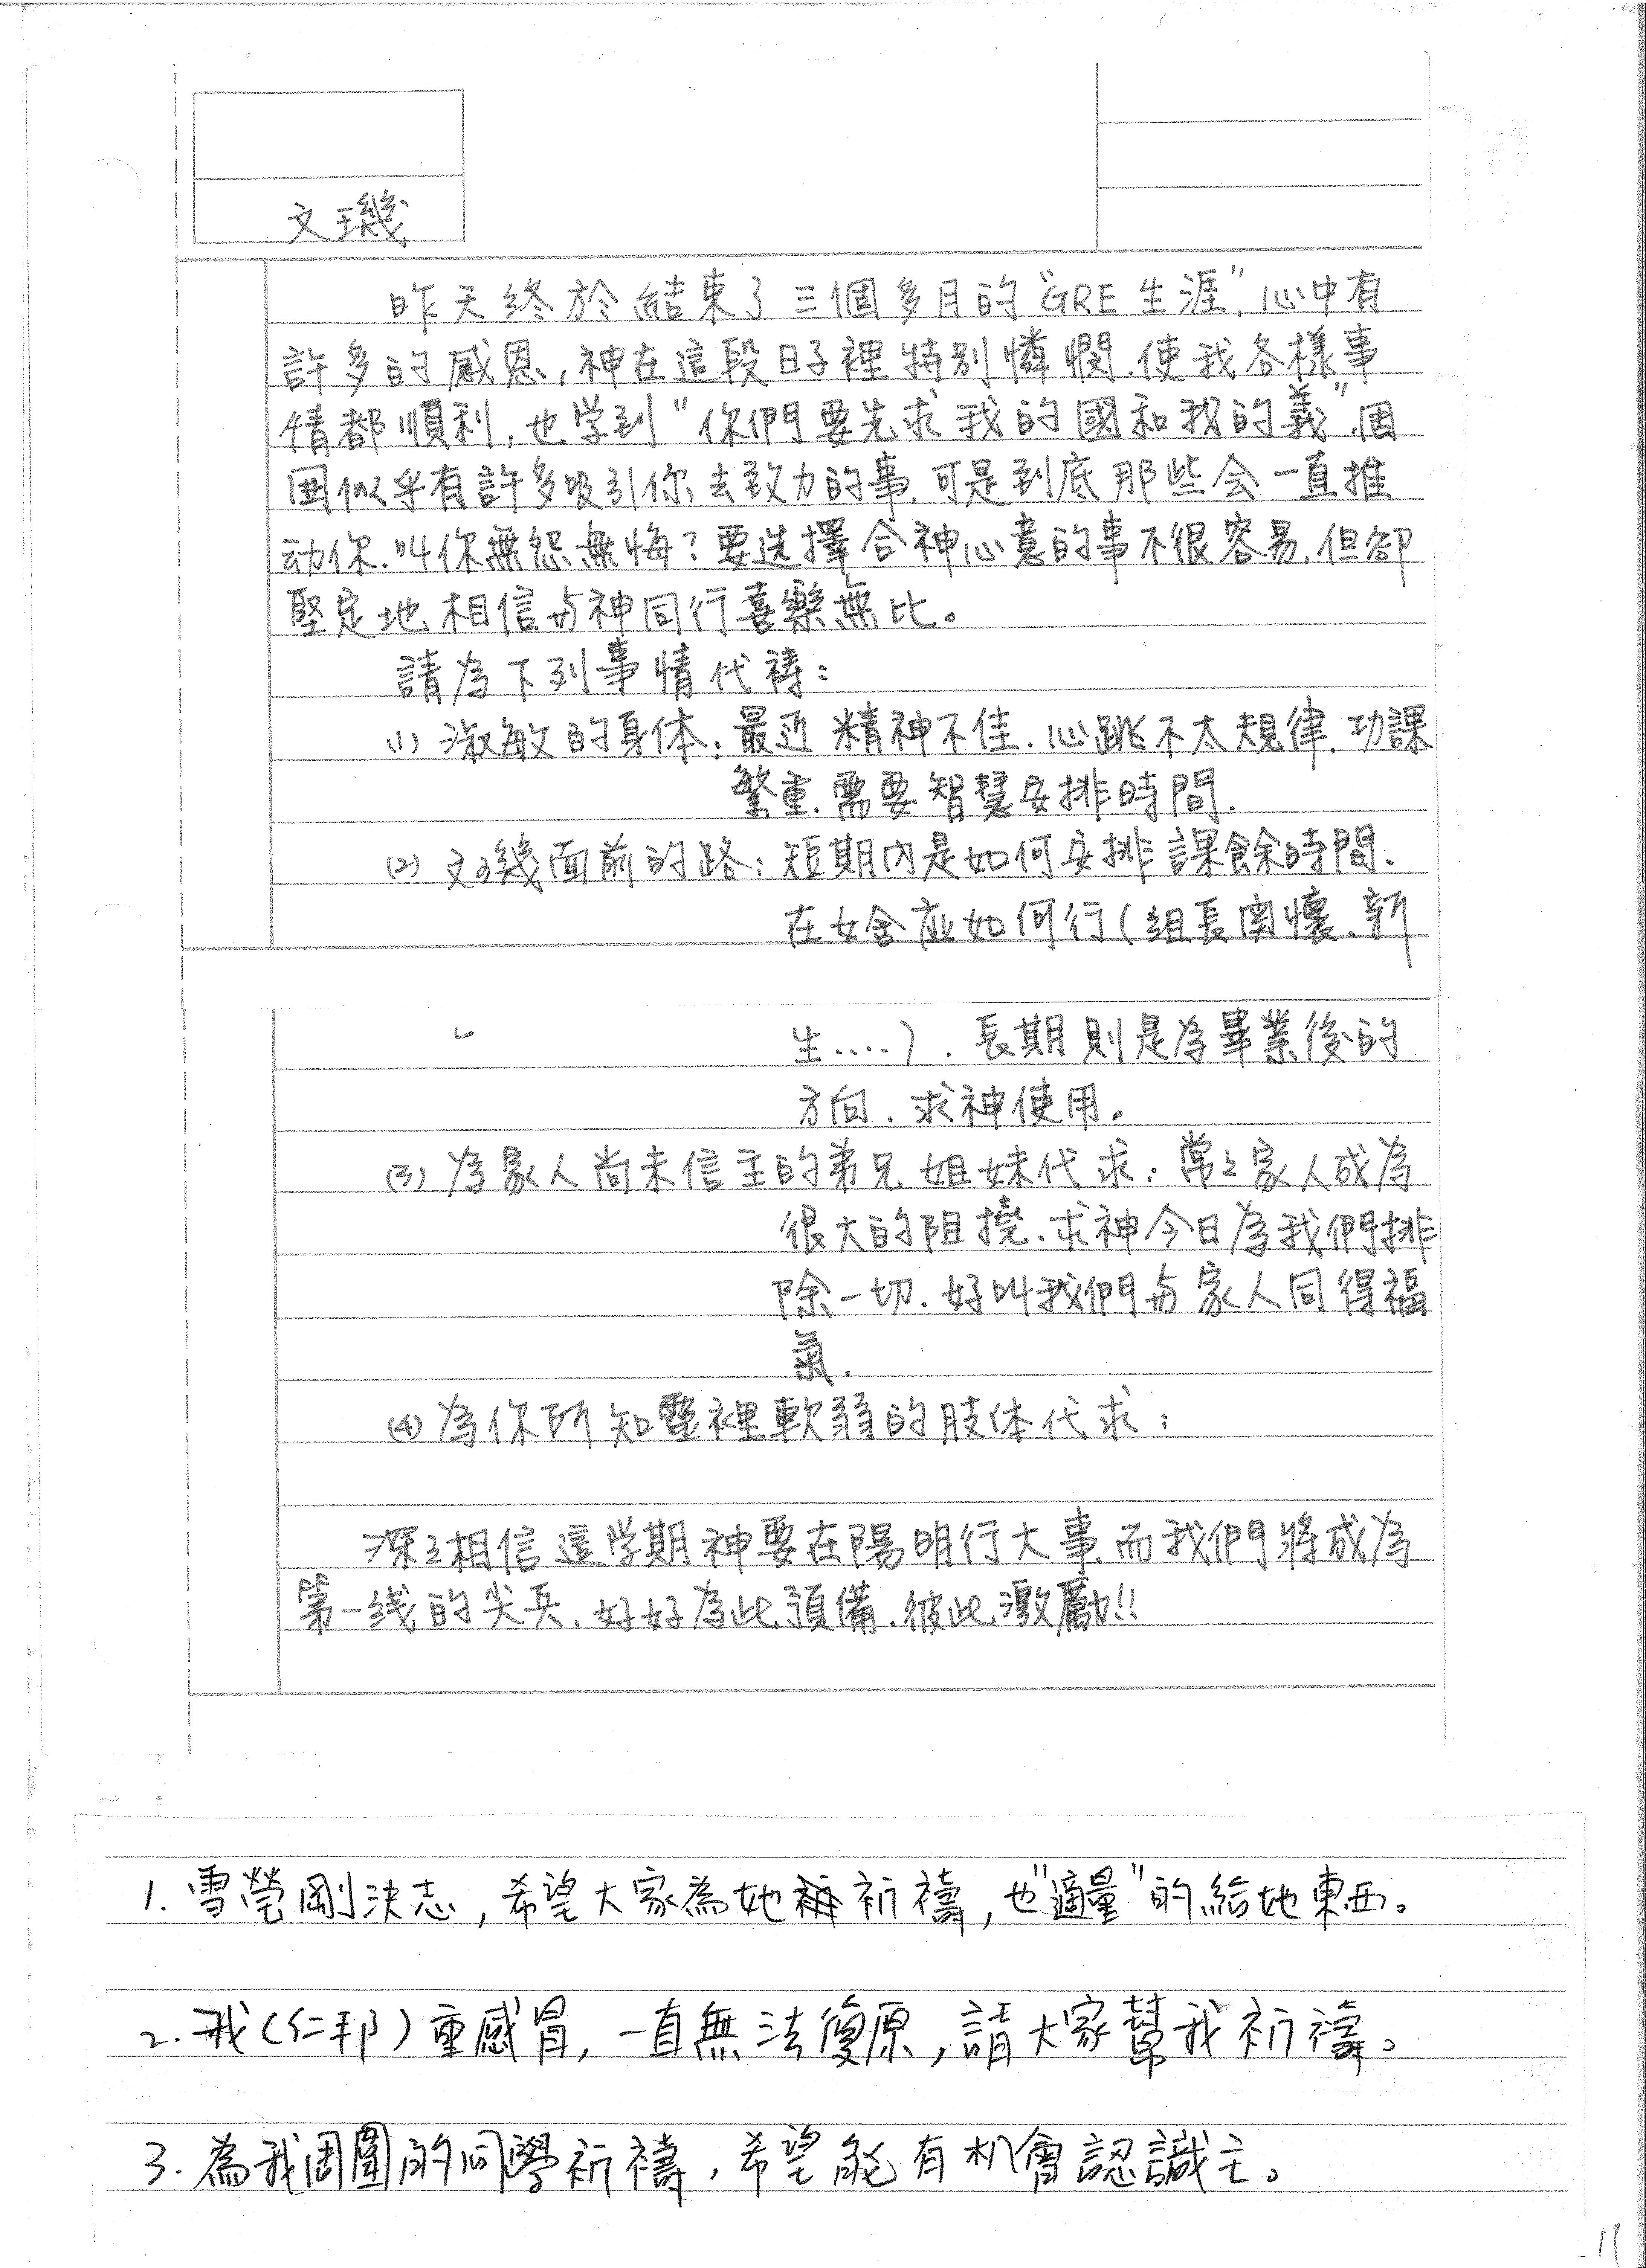 文璣
昨天終於結束了三個多月的"GRE生涯",心中有
許多的感恩,神在這段日子裡特別憐憫.使我各樣事
情都順利,也学到"你們要先求我的國和我的義".周
囲似乎有許多吸引你去致力的事.可是到底那些会一直推
动你.叫你無怨無悔?要选擇合神心意的事不很容易.但卻
堅定地相信与神同行喜樂無比。
請為下列事情代禱:
(1) 淑敏的身体:最近精神不佳.心跳不太規律.功課
繁重.需要智慧安排時間.
(2) 文璣面前的路:短期內是如何安排課餘時間.
在女舍应如何行(組長関懷.新
生....).長期則是為畢業後的
方向.求神使用。
(3) 為家人尚未信主的弟兄姐妹代求:常々家人成為
很大的阻撓.求神今日為我們排
除一切.好叫我們与家人同得福
氣.
(4) 為你所知靈裡軟弱的肢体代求:
深々相信這学期神要在陽明行大事.而我們將成為
第一线的尖兵.好好為此預備.彼此激勵!!
1. 雪瑩剛決志,希望大家為她祈禱,也"適量"的給她東西。
2. 我(仁邦)重感冒,一直無法復原,請大家幫我祈禱。
3. 為我周圍的同學祈禱,希望能有机會認識主。